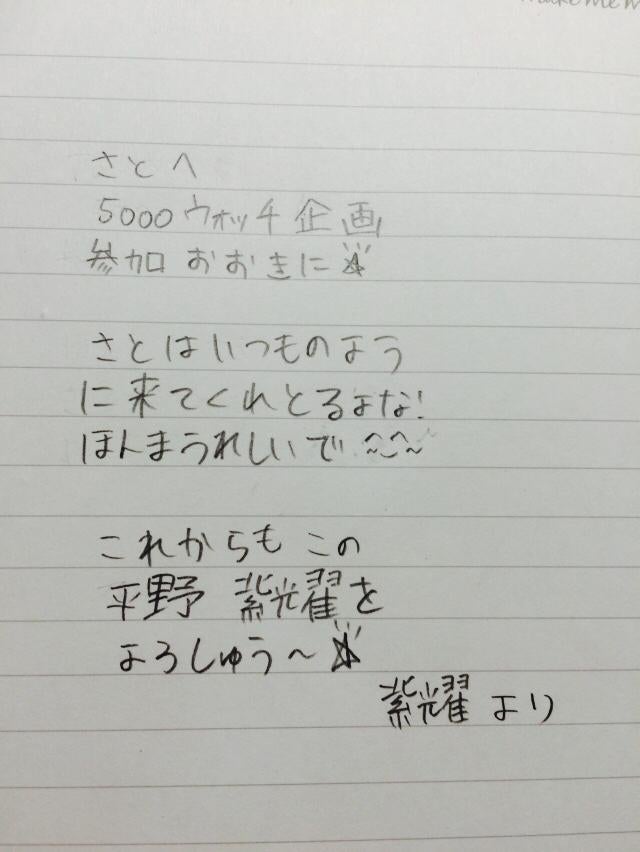 さとへ
5000ウォッチ企画
参加おおきに☆
さとはいつものよう
に来てくれとるよな!
ほんまうれしいで
これからも この
平野 紫耀を
よろしゅう〜☆
紫耀 より